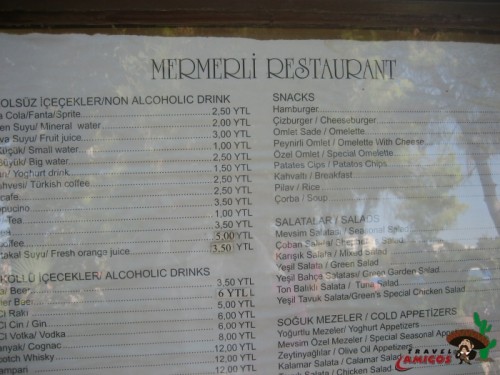 MERMERLİ RESTAURANT
OLSÜZ İÇEÇEKLER/NON ALCOHOLIC DRINK
Cola/Fanta/Sprite 2,50 YTL
Suyu/ Mineral water 2,00 YTL
Suyu/ Fruit juice 3,00 YTL
Küçük/ Small water 1,00 YTL
Büyük/ Big water 2,50 YTL
Yoghurt drink 1,50 YTL
Turkish coffee 2,50 YTL
2,50 YTL
3,50 YTL
Tea 1,00 YTL
3,50 YTL
5,00 YTL
Suyu/ Fresh orange juice 3,50 YTL
İÇEÇEKLER/ ALCOHOLIC DRINKS
3,50 YTL
6 YTL
5,00 YTL
Raki 6,00 YTL
Cin / Gin 6,00 YTL
Votka/ Vodka 8,00 YTL
Cognac 12,00 YTL
Whisky 12,00 YTL
12,00 YTL
SNACKS
Hamburger
Çizburger / Cheeseburger
Omlet Sade / Omelette
Peynirli Omlet / Omelette With Cheese
Özel Omlet / Special Omelette
Patates Cips / Patatos Chips
Kahvaltı / Breakfast
Pilav / Rice
Çorba / Soup
SALATALAR / SALADS
Mevsim Salatası / Seasonal
Çoban Salata/
Karışık Salata / Mixed Salad
Yeşil Salata / Green Salad
Yeşil Bahçe Salatası/ Green Garden Salad
Ton Balıklı Salata / Tuna Salad
Yeşil Tavuk Salata/Green's Special Chicken Salad
SOĞUK MEZELER / COLD APPETIZERS
Yoğurtlu Mezeler/ Yoghurt Appetizers
Mevsim Özel Mezeler / Special Seasonal
Zeytinyağlılar / Olive Oil Appetizers
Kalamar Salata / Calamar Salad
Chicken
TRAVEL
AMIGOS